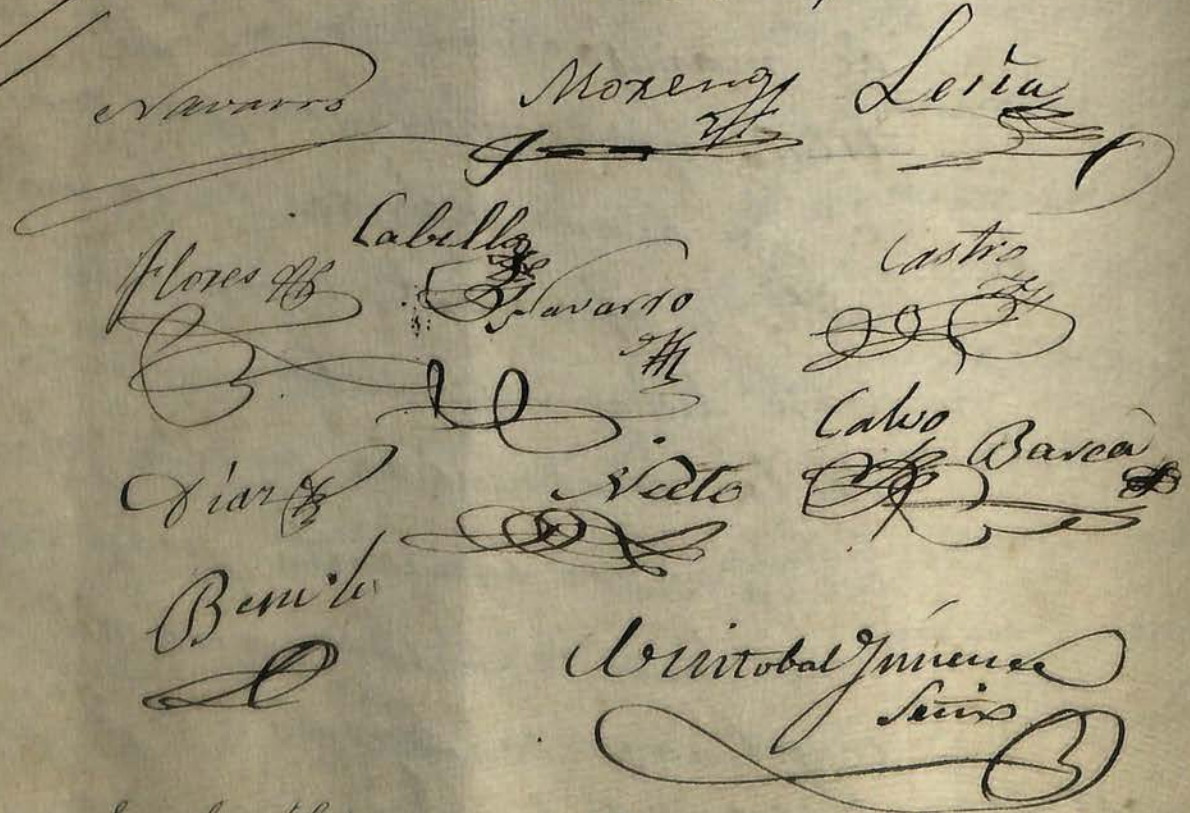 Navarro Moreno Leria
Flores Cabello Navarro Castro
Diaz Nieto Calvo Barea
Benito
Cristobal Jimenez